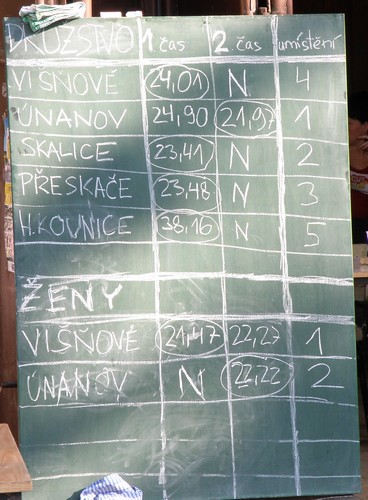 DRUŽSTVO 1 čas 2. čas umístění
VIŠŇOVÉ 24,01 N 4
ÚNANOV 24,90 21,97 1
SKALICE 23,41 N 2
PŘESKAČE 23,48 N 3
H.KOUNICE 38,16 N 5
ŽENY
VIŠŇOVÉ 21,47 22,27 1
ÚNANOV N 22,22 2